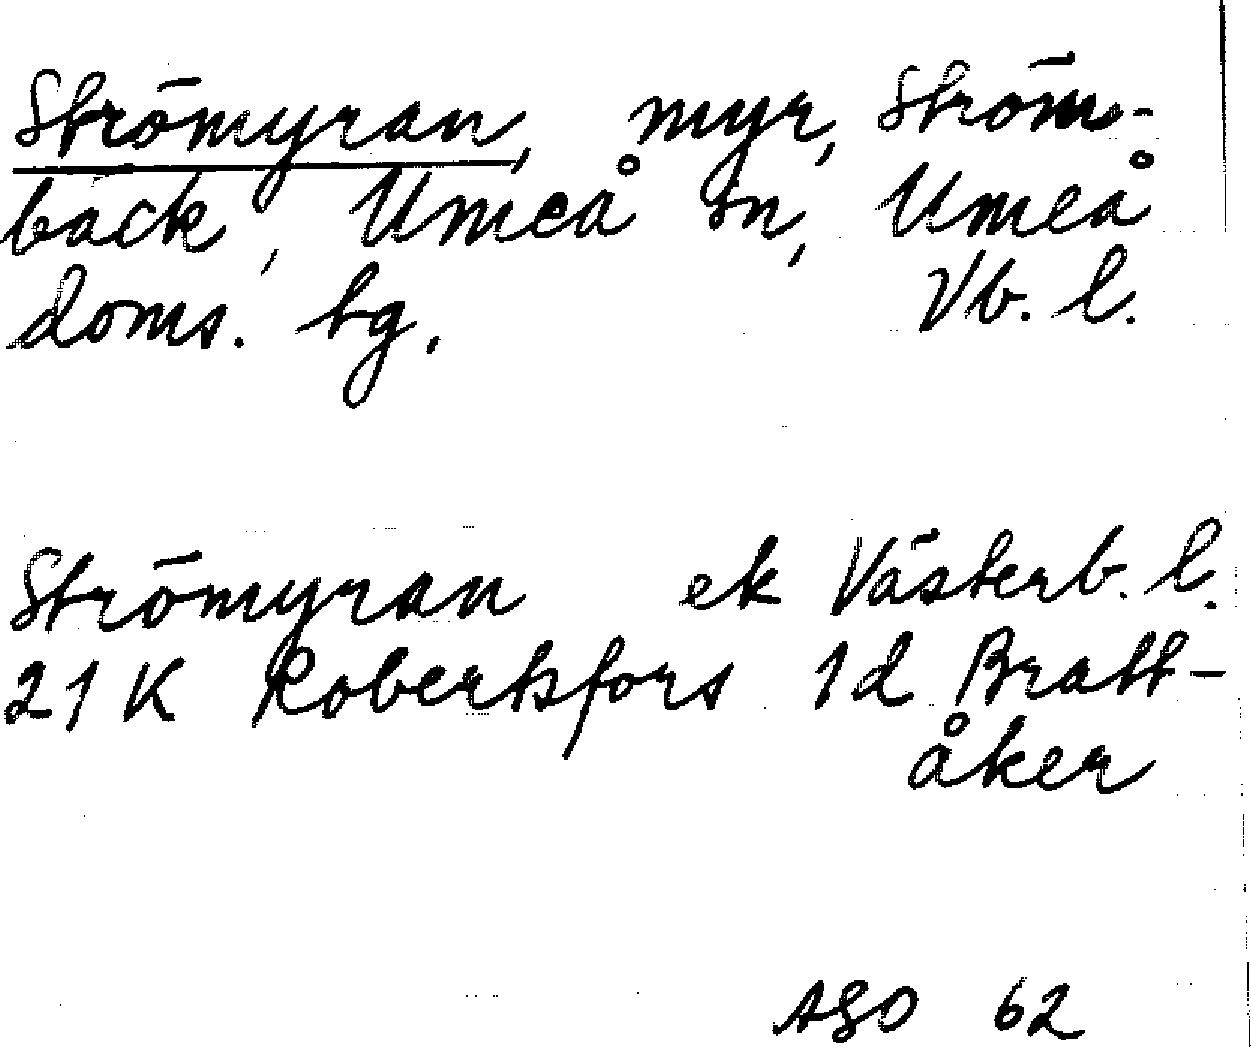 Strömyran, myr, Ström-
bäck, Umeå sn, Umeå
doms. tg. Vb. l.
Strömyran ek Västerb. l.
21 K Robertsfors 1d Bratt-
åker
AGO 62